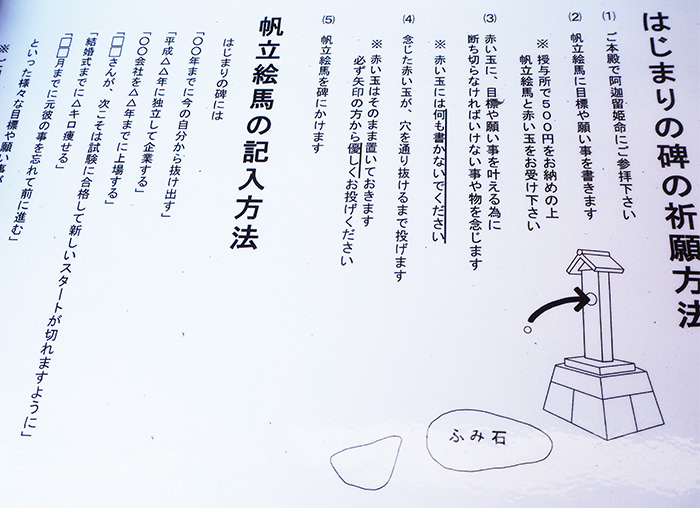 はじまりの碑の祈願方法
(1) ご本殿で阿迦留姫命にご参拝下さい
(2) 帆立絵馬に目標や願い事を書きます
※ 授与所で５００円をお納めの上
帆立絵馬と赤い玉をお受け下さい
(3) 赤い玉に、目標や願い事を叶える為に
断ち切らなければいけない事や物を念じます
※ 赤い玉には何も書かないでください
(4) 念じた赤い玉が、穴を通り抜けるまで投げます
※ 赤い玉はそのまま置いておきます
必ず矢印の方から優しくお投げください
(5) 帆立絵馬を碑にかけます
ふみ石
帆立絵馬の記入方法
はじまりの碑には
「〇〇年までに今の自分から抜け出す」
「平成△△年に独立して企業する」
「〇〇会社を△△年までに上場する」
「□□さんが、次こそは試験に合格して新しいスタートが切れますように」
「結婚式までに△キロ痩せる」
「□□月までに元彼の事を忘れて前に進む」
といった様々な目標や願い事が